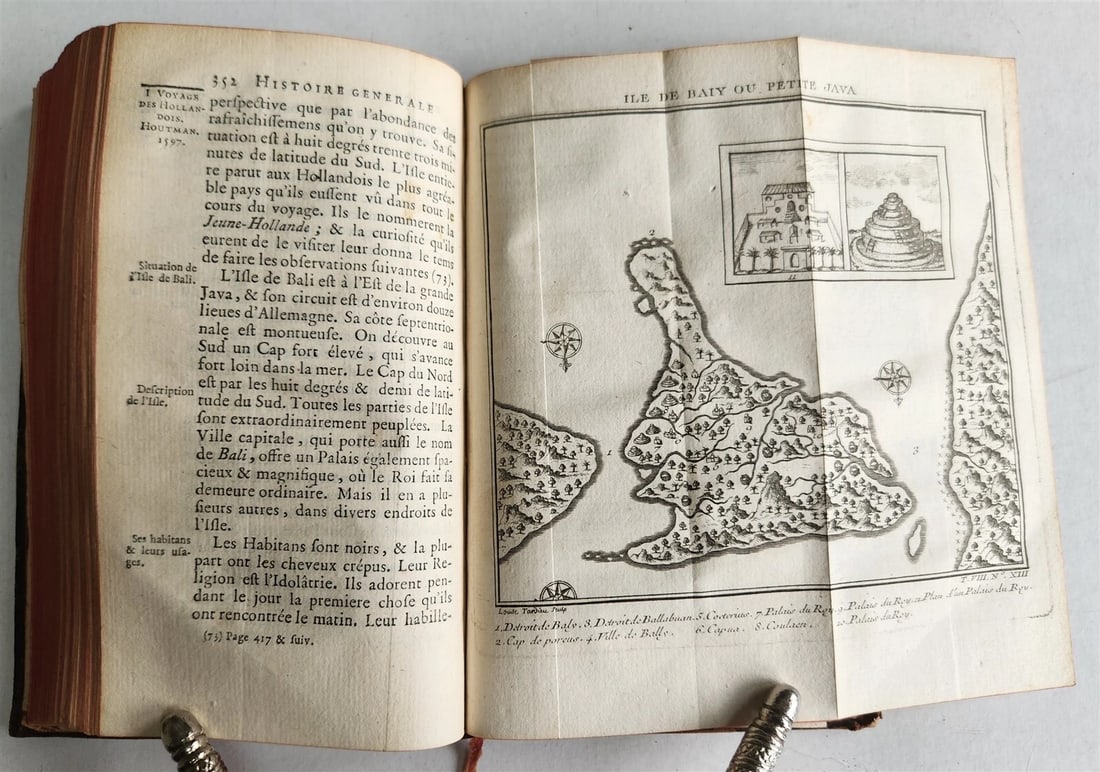 352 HISTOIRE GENERALE
I VOYAGE
DES HOLLAN-
DOIS.
HOUTMAN.
1597.
perſpective que par l'abondance des
rafraîchiſſemens qu'on y trouve. Sa ſi-
tuation eſt à huit degrés trente trois mi-
nutes de latitude du Sud. L'Iſle entie-
re parut aux Hollandois le plus agréa-
ble pays qu'ils euſſent vû dans tout le
cours du voyage. Ils le nommerent la
Jeune-Hollande ; & la curioſité qu'ils
eurent de le viſiter leur donna le tems
de faire les obſervations ſuivantes (73).
Situation de
l'Iſle de Bali.
L'Iſle de Bali eſt à l'Eſt de la grande
Java, & ſon circuit eſt d'environ douze
lieues d'Allemagne. Sa côte ſeptentrio-
nale eſt montueuſe. On découvre au
Sud un Cap fort élevé, qui s'avance
fort loin dans la mer. Le Cap du Nord
eſt par les huit degrés & demi de lati-
tude du Sud. Toutes les parties de l'Iſle
ſont extraordinairement peuplées. La
Ville capitale, qui porte auſſi le nom
de Bali, offre un Palais également ſpa-
cieux & magnifique, où le Roi fait ſa
demeure ordinaire. Mais il en a plu-
ſieurs autres, dans divers endroits de
l'Iſle.
Deſcription
de l'Iſle.
Ses habitans
& leurs uſa-
ges.
Les Habitans ſont noirs, & la plu-
part ont les cheveux crépus. Leur Re-
ligion eſt l'Idolâtrie. Ils adorent pen-
dant le jour la premiere choſe qu'ils
ont rencontrée le matin. Leur habille-
(73) Page 417 & ſuiv.
ILE DE BALY OU PETITE JAVA
11
2
1
3
T. VIII. N.º XIII
1. Detroit de Baly. 3. Detroit de Ballabuan. 5. Costerius. 7. Palais du Roy. 9. Palais du Roy. 11. Plan d'un Palais du Roy.
2. Cap de porcus. 4. Ville de Balle. 6. Capua. 8. Coulaen. 10. Palais du Roy.